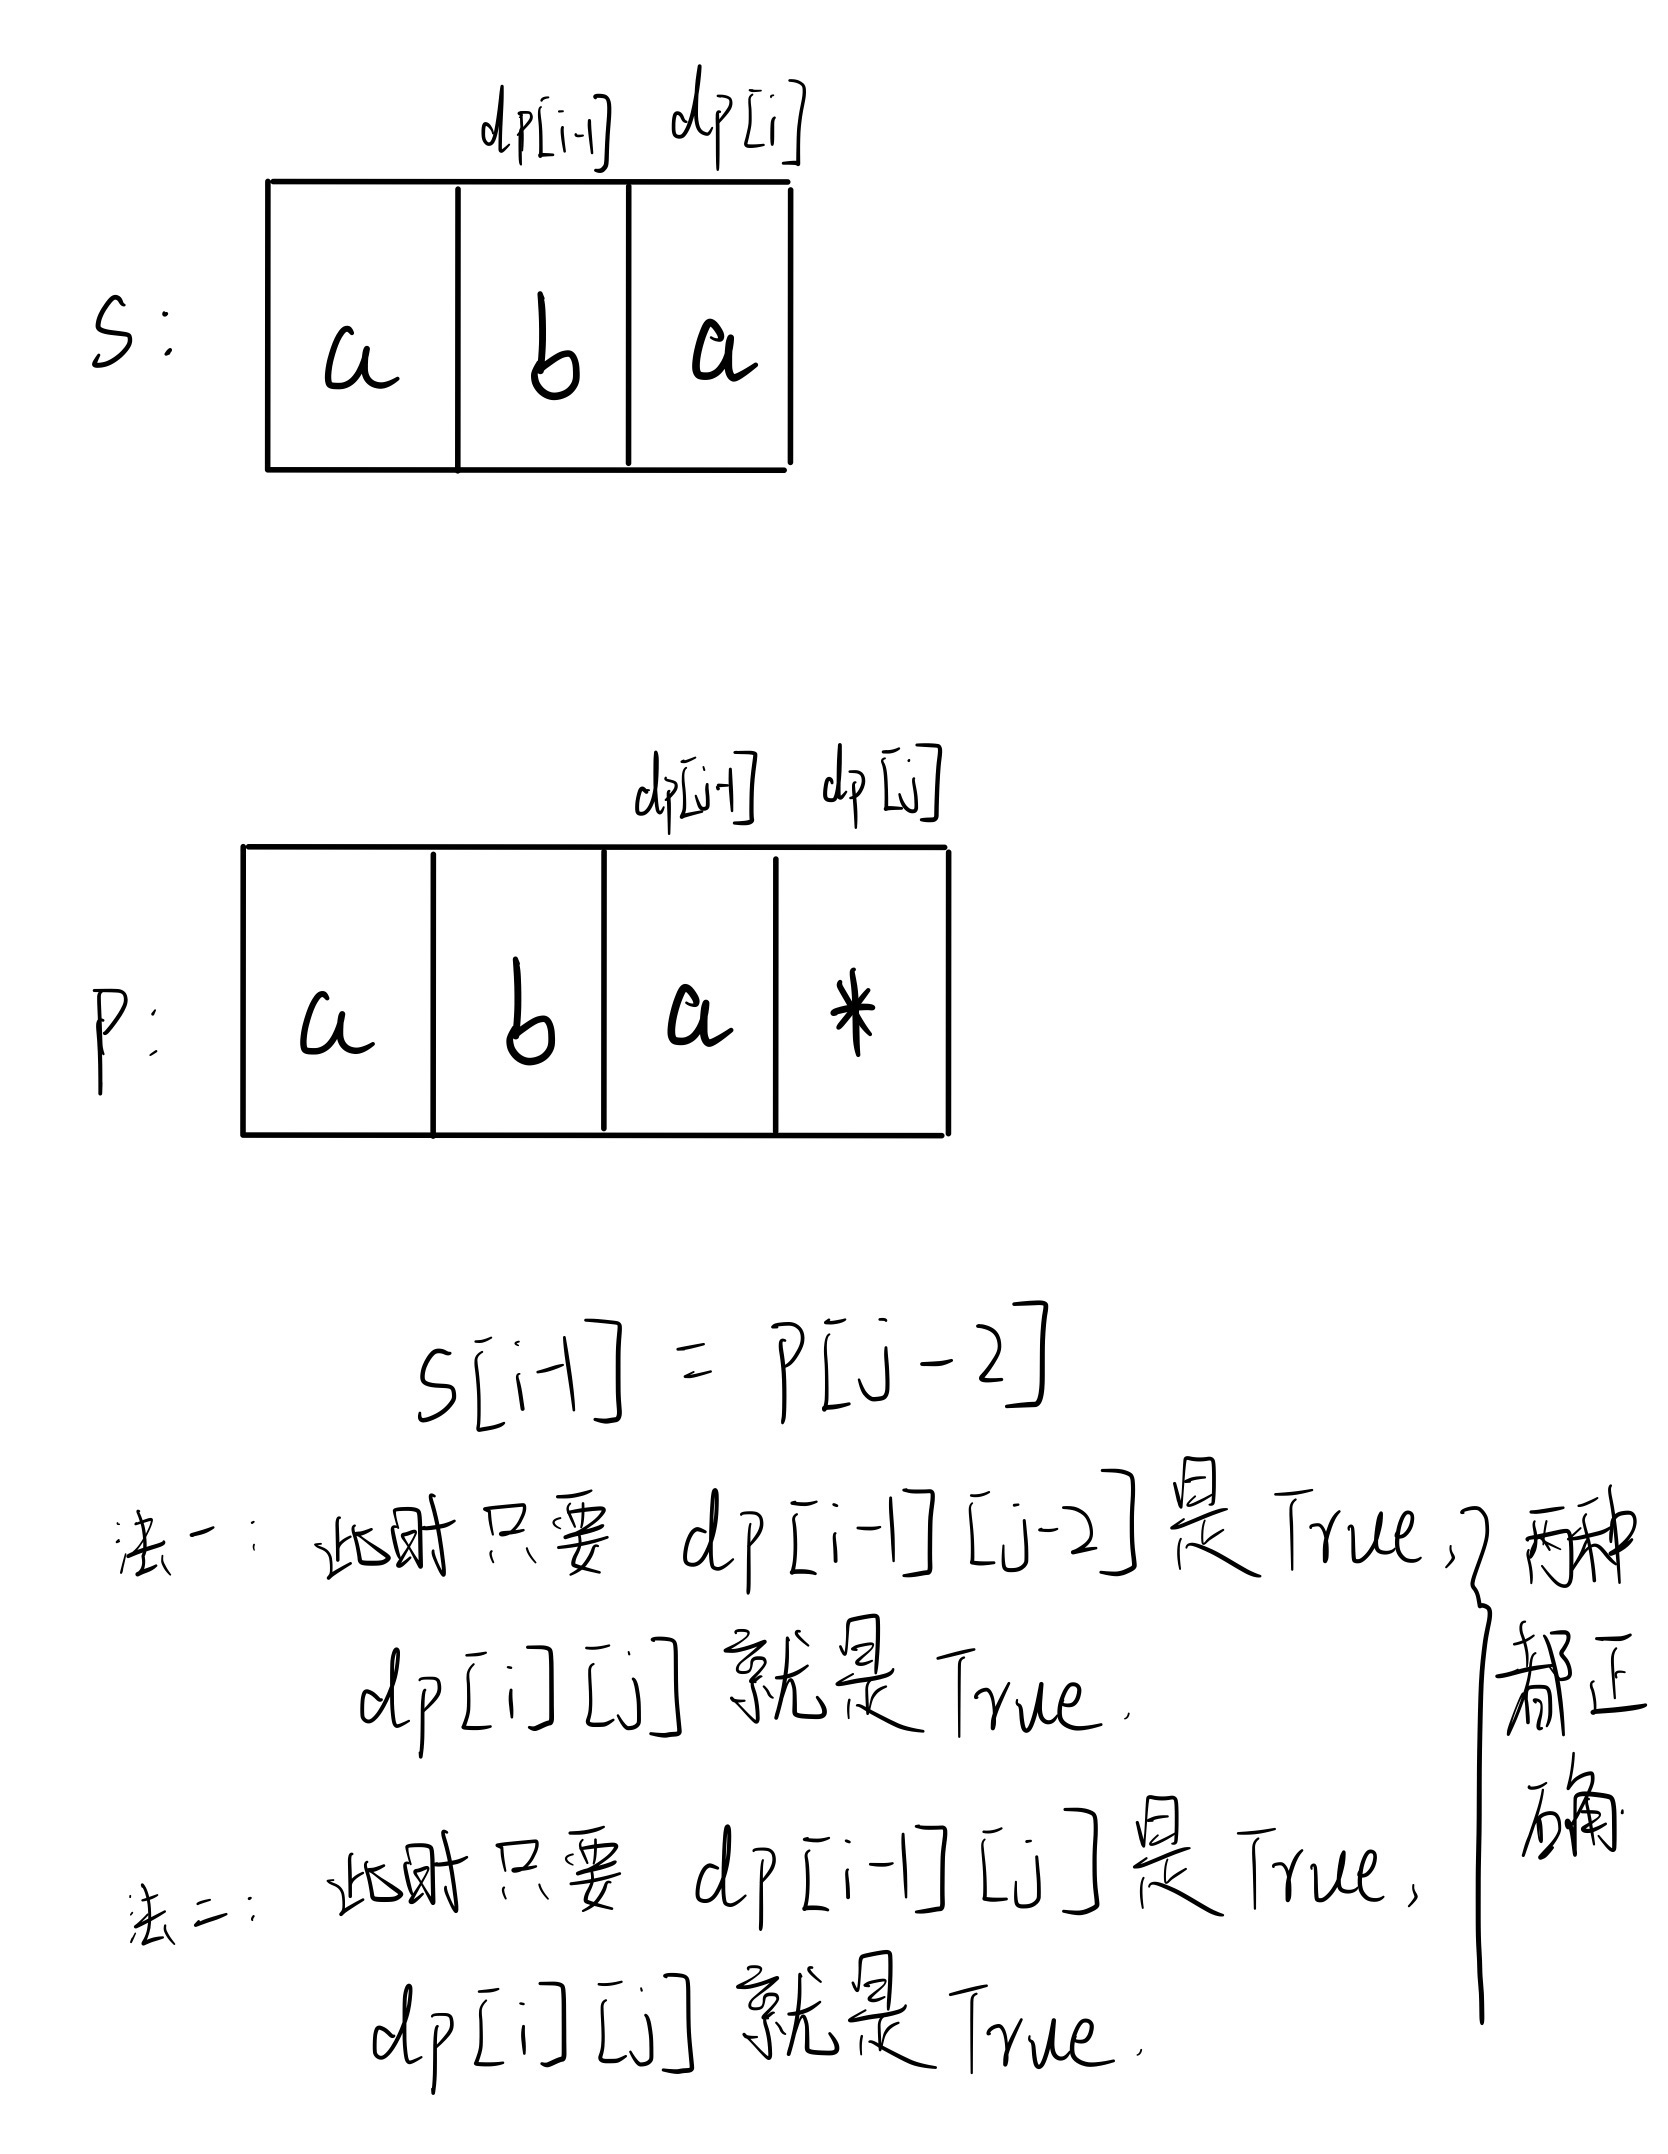 dp[i-1] dp[i]
S: a b a
dp[j-1] dp[j]
P: a b a *
S[i-1] = P[j-2]
法一: 此时只要 dp[i-1][j-2]是True,
dp[i][j]就是True.
法二: 此时只要 dp[i-1][j]是True,
dp[i][j]就是True.
两种
都正
确.